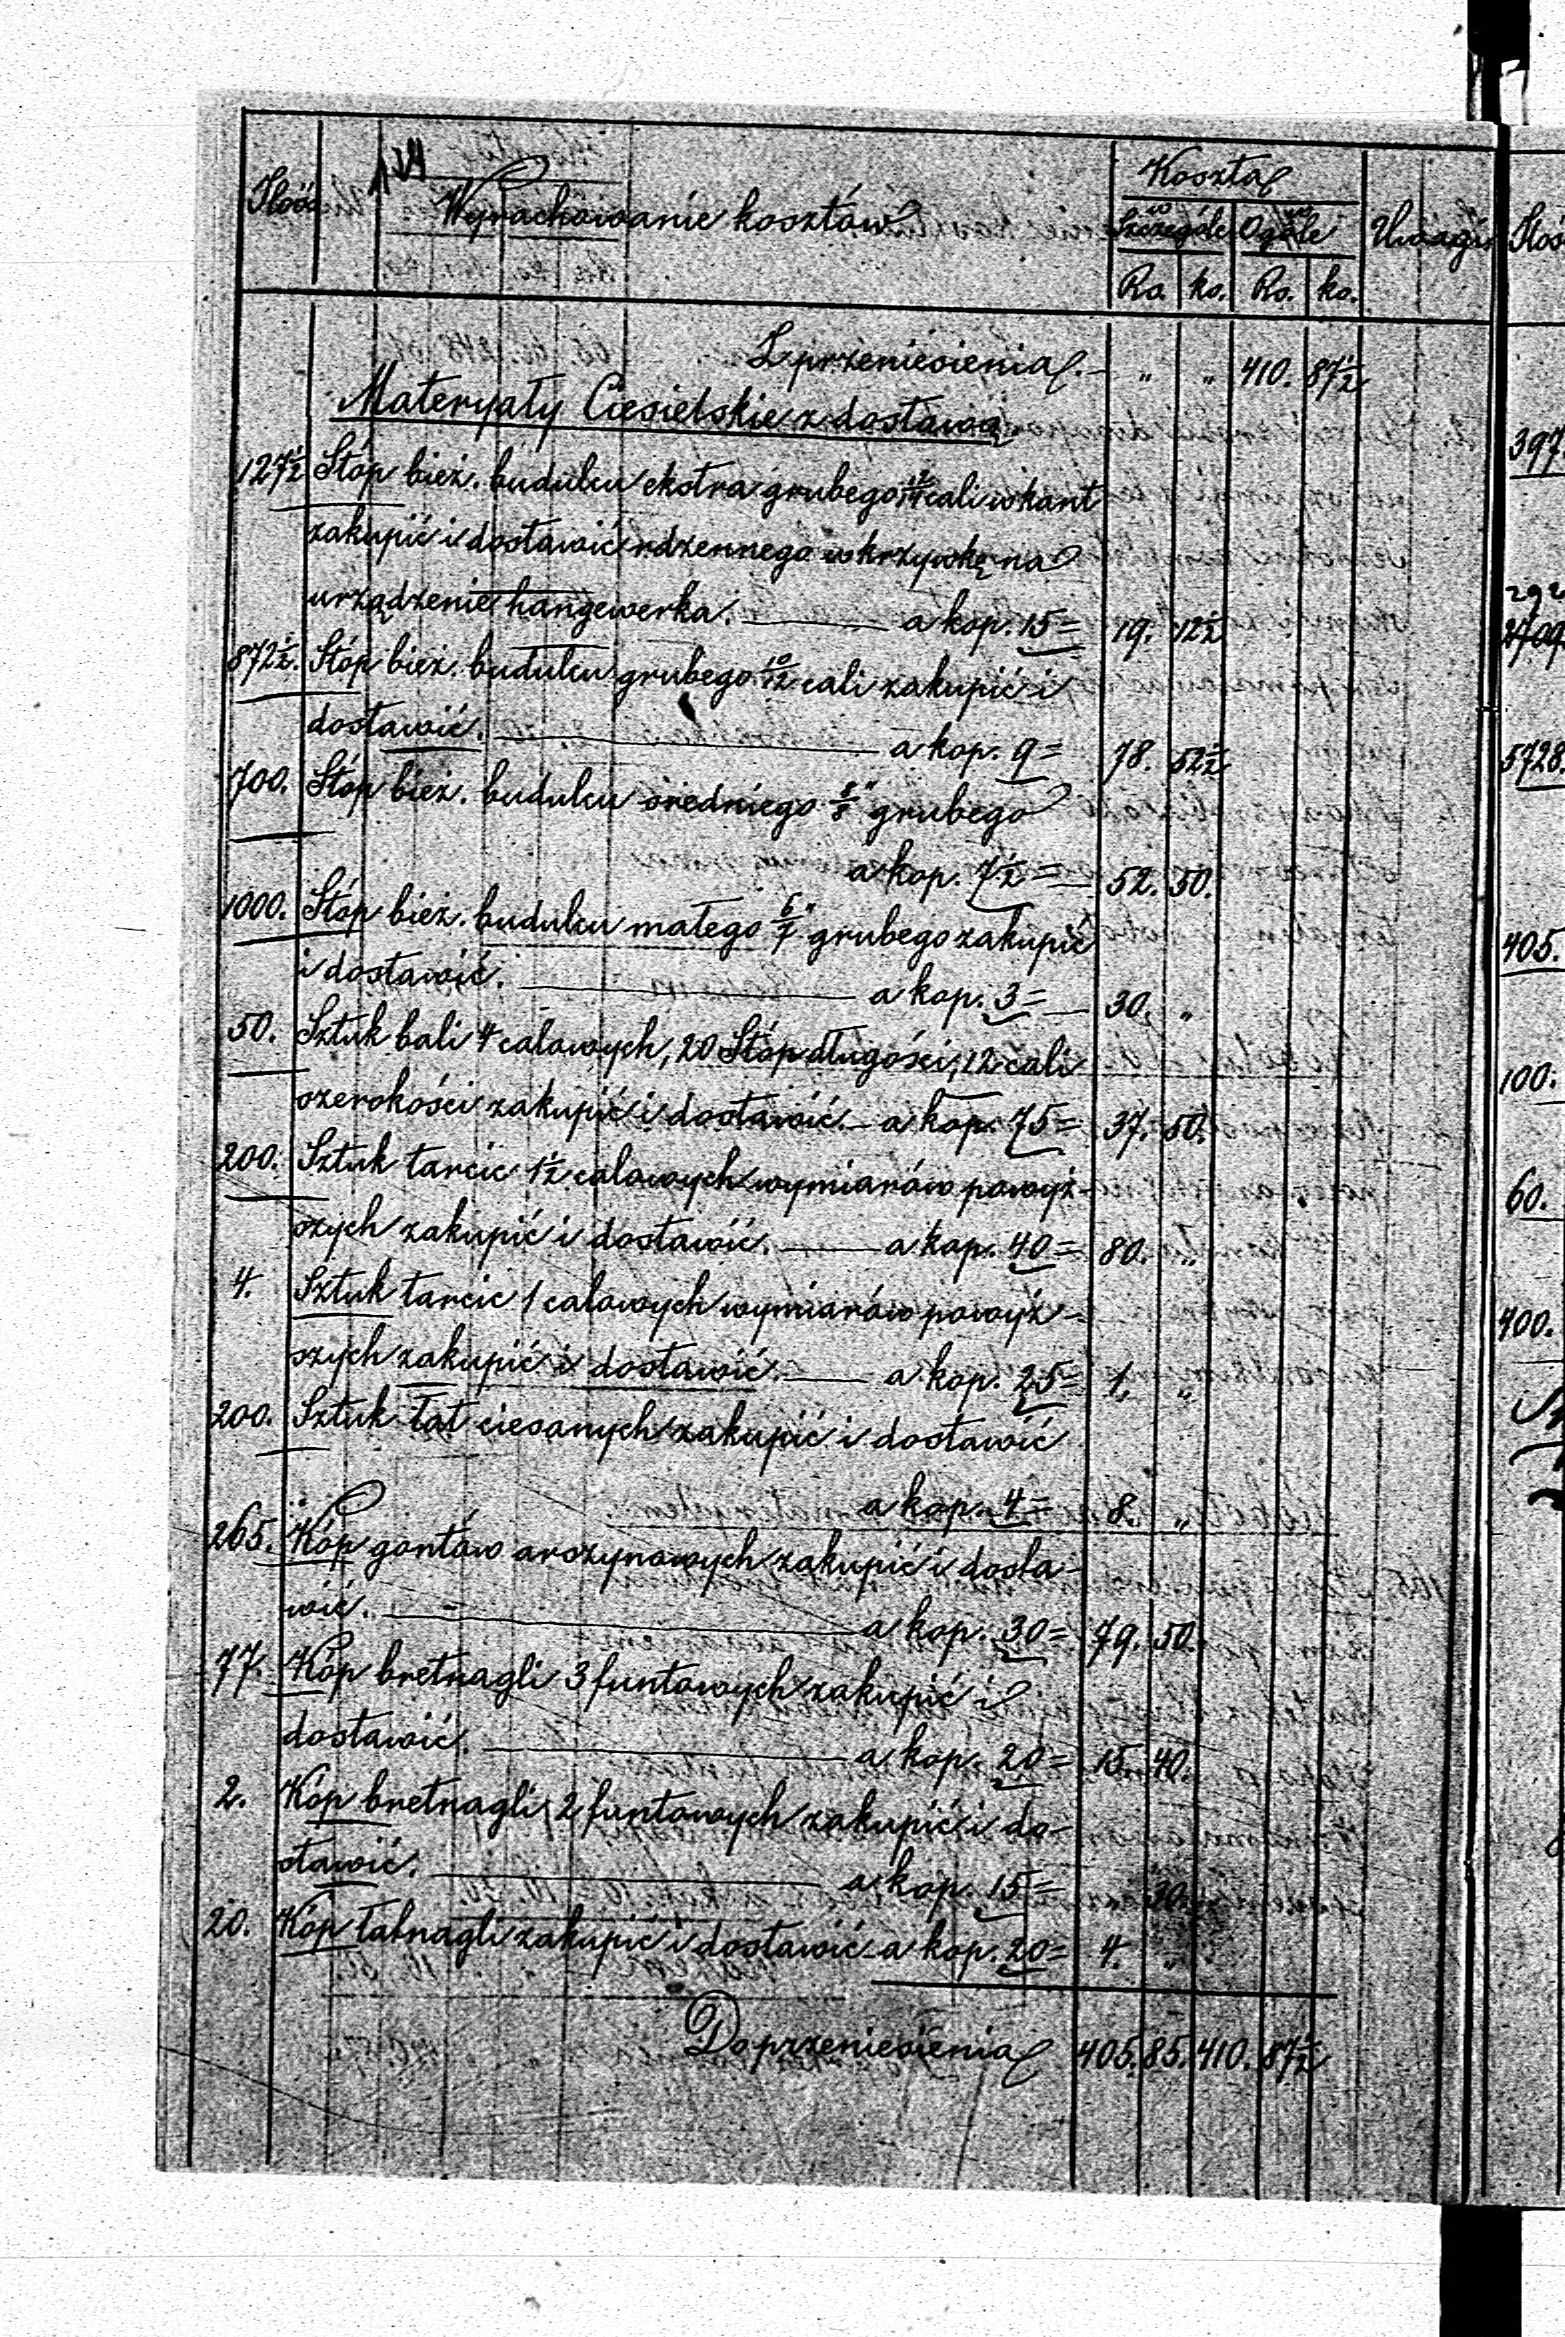 Ilość
Wyrachowanie kosztów
Koszta
w Szczególe
w Ogóle
Uwagi
Ro. ko. Ro. ko.
Z przeniesienia. " " 410. 87½
Materyały Ciesielskie z dostawą
127½ Stóp bież. budulcu ekstra grubego cali w kant
zakupić i dostawić rdzennego w krzywkę na
urządzenie hangewerka. a kop. 15= 19. 12½
872½. Stóp bież. budulcu grubego 10/12 cali zakupić i
dostawić. a kop. 9= 78. 52½
700. Stóp bież. budulcu średniego 8/8" grubego
a kop. 7½= 52. 50.
1000. Stóp bież. budulcu małego 6/7" grubego zakupić
i dostawić. a kop. 3= 30. "
50. Sztuk bali 4 calowych, 20 Stóp długości, 12 cali
szerokości zakupić i dostawić. a kop. 75= 37. 50.
200. Sztuk tarcic 1½ calowych wymiarów powyż-
szych zakupić i dostawić. a kop. 40= 80. "
4. Sztuk tarcic 1 calowych wymiarów powyż-
szych zakupić i dostawić. a kop. 25= 1. "
200. Sztuk łat ciesanych zakupić i dostawić
a kop. 4= 8. "
265. Kóp gontów arszynowych zakupić i dosta-
wić. a kop. 30= 79. 50.
77. Kóp bretnagli 3 funtowych zakupić i
dostawić. a kop. 20= 15. 40.
2. Kóp bretnagli 2 funtowych zakupić i do-
stawić. a kop. 15= " 30.
20. Kóp łatnagli zakupić i dostawić a kop. 20= 4. "
Do przeniesienia 405. 85. 410. 87½
397.
292
2709
5728.
405.
100.
60.
400.